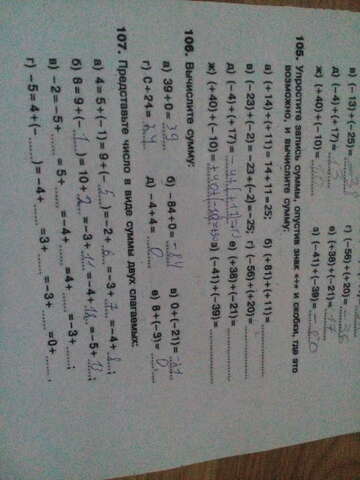 в) (-13)+(-25)=
г) (-56)+(+20)= -36
д) (-4)+(+17)=
е) (+38)+(-21)= 17
ж) (+40)+(-10)=
з) (-41)+(-39)= -80
105. Упростите запись суммы, опустив знак «+» и скобки, где это
возможно, и вычислите сумму:
а) (+14)+(+11)=14+11=25; б) (+81)+(+11)=
в) (-23)+(-2)=-23+(-2)=-25; г) (-56)+(+20)=
д) (-4)+(+17)= е) (+38)+(-21)=
ж) (+40)+(-10)= з) (-41)+(-39)=
106. Вычислите сумму:
а) 39+0= 39 б) -84+0= -84 в) 0+(-21)= -21
г) С+24= 24 д) -4+4= 0 е) 8+(-8)= 0
107. Представьте число в виде суммы двух слагаемых:
а) 4=5+(-1)=9+(-5)=-2+6=-3+7=-4+8;
б) 8=9+(-1)=10+2=-3+11=-4+12=-5+13;
в) -2=-5+ =5+ =-4+ =4+ =-3+ ;
г) -5=4+(- )=-4+ =3+ =-3+ =0+ .